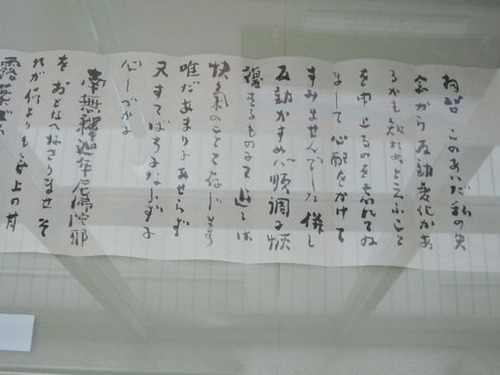 拝啓 このあいだ私の失
念から反動変化があ
るかも知れぬと云ふこと
を申上るのを忘れてゐ
まして心配をかけて
すみませんでした 併し
反動がすめば順調に恢
復するもの
快気のことと存じます
唯だあまりあせらず
又すてばちにならずに
心しづかに
南無釈迦牟尼佛陀耶
をおとなへなさりませ そ
れが何よりも無上の
霊薬